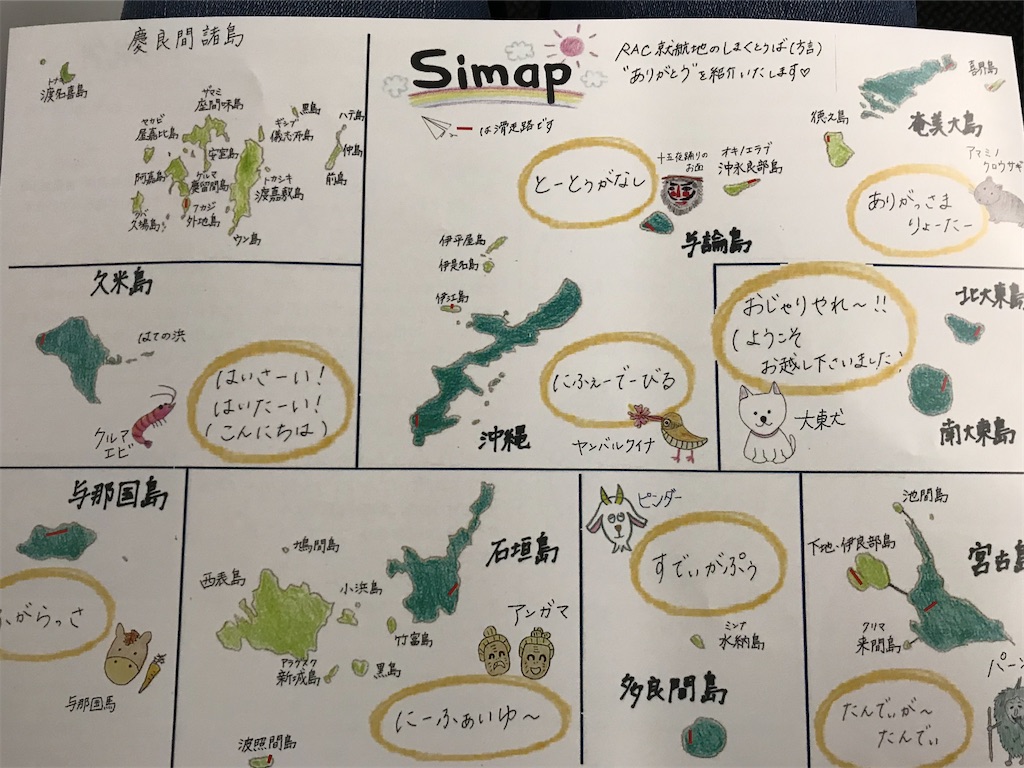 慶良間諸島
トナキ
渡名喜島
ザマミ
座間味島
黒島
ハテ島
ヤカビ
屋嘉比島
ギシップ
儀志布島
仲島
安室島
前島
阿嘉島
ゲルマ
慶留間島
トカシキ
渡嘉敷島
クバ
久場島
フカジ
外地島
ウン島
Simap
RAC就航地のしまくとぅば(方言)
"ありがとう"を紹介いたします♡
は滑走路です
喜界島
徳之島
奄美大島
アマミノ
クロウサギ
ありがっさま
りょーたー
とーとぅがなし
十五夜踊りの
お面
オキノエラブ
沖永良部島
与論島
伊平屋島
伊是名島
伊江島
にふぇーでーびる
沖縄
ヤンバルクイナ
久米島
はての浜
はいさーい!
はいたーい!
(こんにちは)
クルマ
エビ
おじゃりやれ〜!!
(ようこそ
お越し下さいました)
北大東島
大東犬
南大東島
与那国島
ふがらっさ
与那国馬
石垣島
鳩間島
西表島
小浜島
竹富島
アラグスク
新城島
黒島
アンガマ
にーふぁいゆ〜
波照間島
ピンダー
すでぃがぷう
ミンナ
水納島
多良間島
池間島
下地・伊良部島
宮古島
クリマ
来間島
たんでぃが〜
たんでぃ
パーン